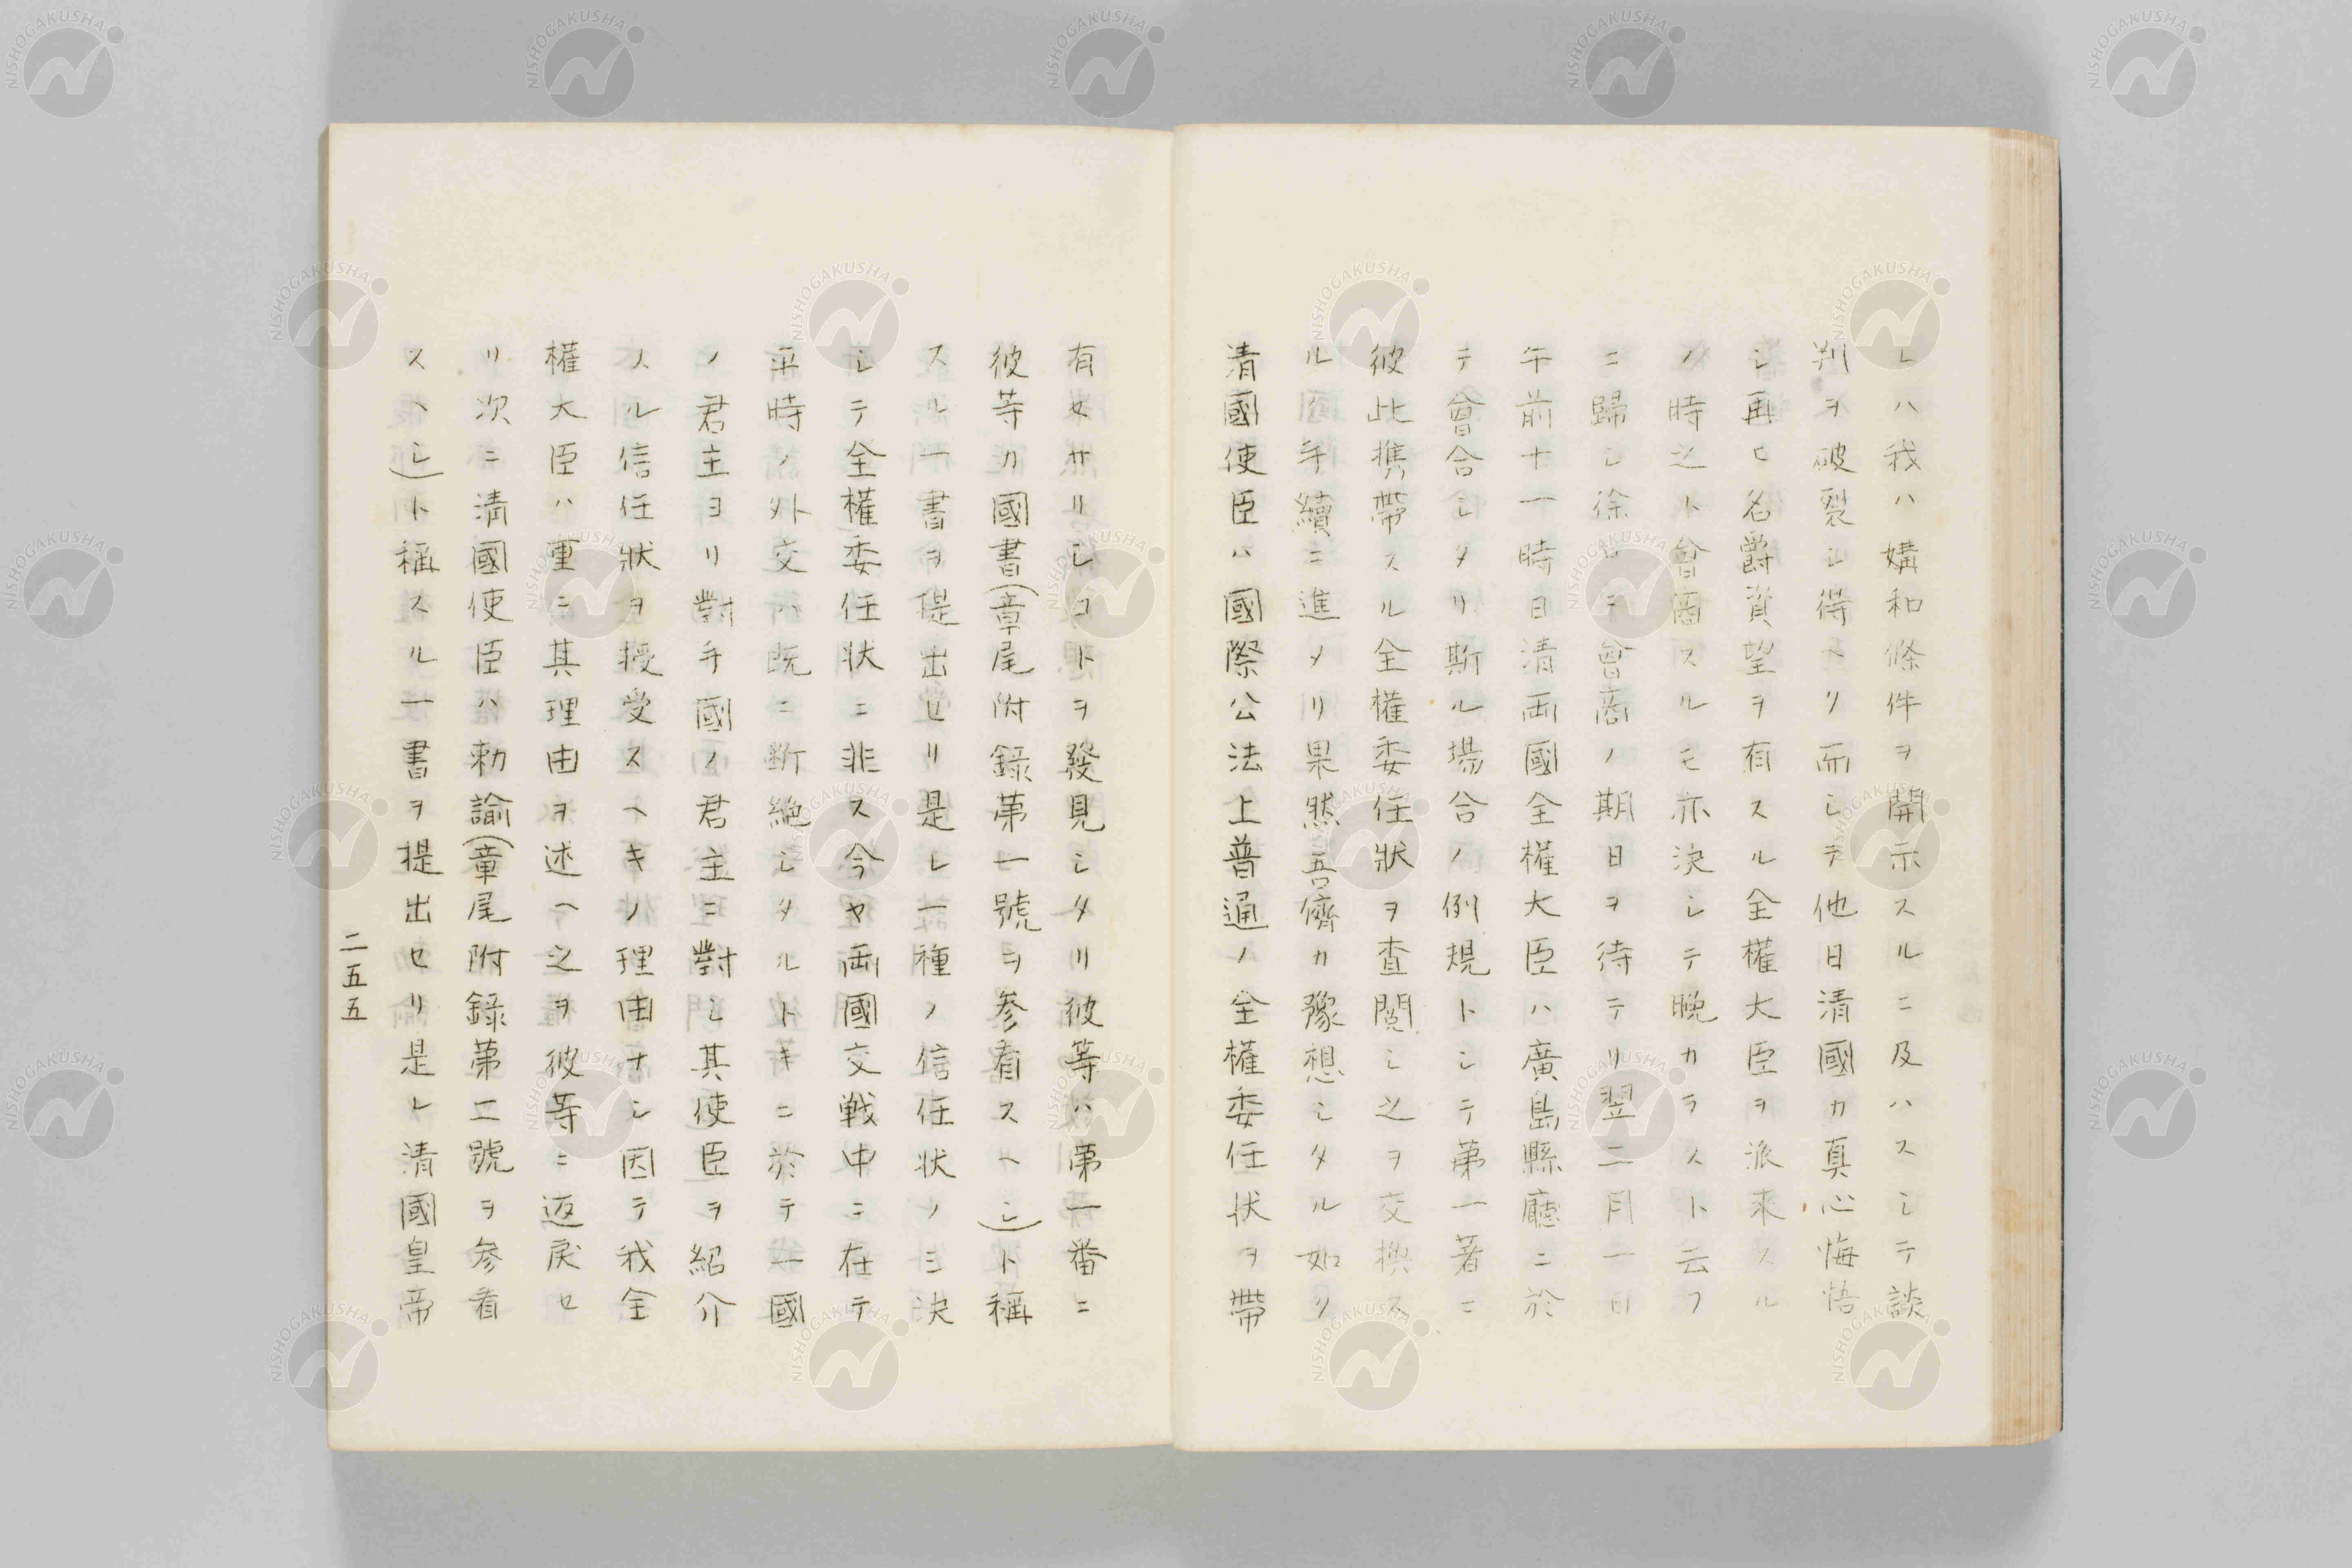 レハ我ハ媾和條件ヲ開示スルニ及ハスシテ談
判ヲ破裂シ得ヘリ而シテ他日清國カ真心悔悟
シ再ヒ名爵資望ヲ有スル全權大臣ヲ派來スル
ノ時之ト會商スルモ亦決シテ晩カラスト云フ
ニ歸シ徐ロニ會商ノ期日ヲ待テリ翌二月一日
午前十一時日清両國全權大臣ハ廣島縣廳ニ於
テ會合シタリ斯ル場合ノ例規トシテ第一著ニ
彼此携帶スル全權委任狀ヲ査閲シ之ヲ交換ス
ル手續ニ進メリ果然吾儕カ豫想シタル如ク
清國使臣ハ國際公法上普通ノ全權委任狀ヲ帶
有セサリシコトヲ發見シタリ彼等ハ第一番ニ
彼等カ國書(章尾附錄第一號ヲ参看スヘシ)ト稱
スル一書ヲ提出セリ是レ一種ノ信任狀ノミ決
シテ全權委任狀ニ非ス今ヤ両國交戰中ニ在テ
平時ノ外交ハ既ニ斷絶シタルトキニ於テ一國
ノ君主ヨリ對手國ノ君主ニ對シ其使臣ヲ紹介
スル信任狀ヲ授受スヘキノ理由ナシ因テ我全
權大臣ハ重ニ其理由ヲ述ヘ之ヲ彼等ニ返戻セ
リ次ニ清國使臣ハ勅諭(章尾附錄第二號ヲ参看
スヘシ)ト稱スル一書ヲ提出セリ是レ清國皇帝
二五五
NISHOGAKUSHA